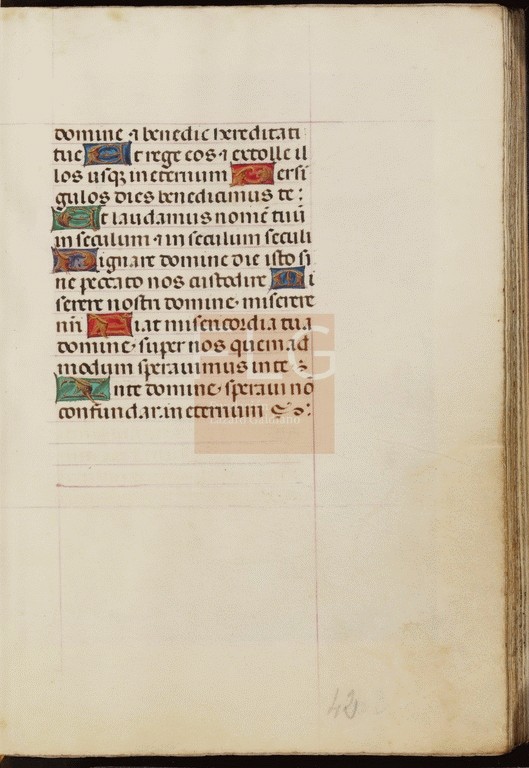 domine ⁊ benedic hereditati
tue Et rege eos ⁊ extolle il
los usqꝫ in eternum Per si
gulos dies benedicimus te :
Et laudamus nomē tuū
in seculum ⁊ in seculum seculi
Dignare domine die isto si
ne peccato nos custodire Mi
serere nostri domine · miserere
nr̄i Fiat misericordia tua
domine · super nos quemad
modum speravimus in te
Inte domine · speravi nō
confundar in eternum
Lázaro Galdiano
42